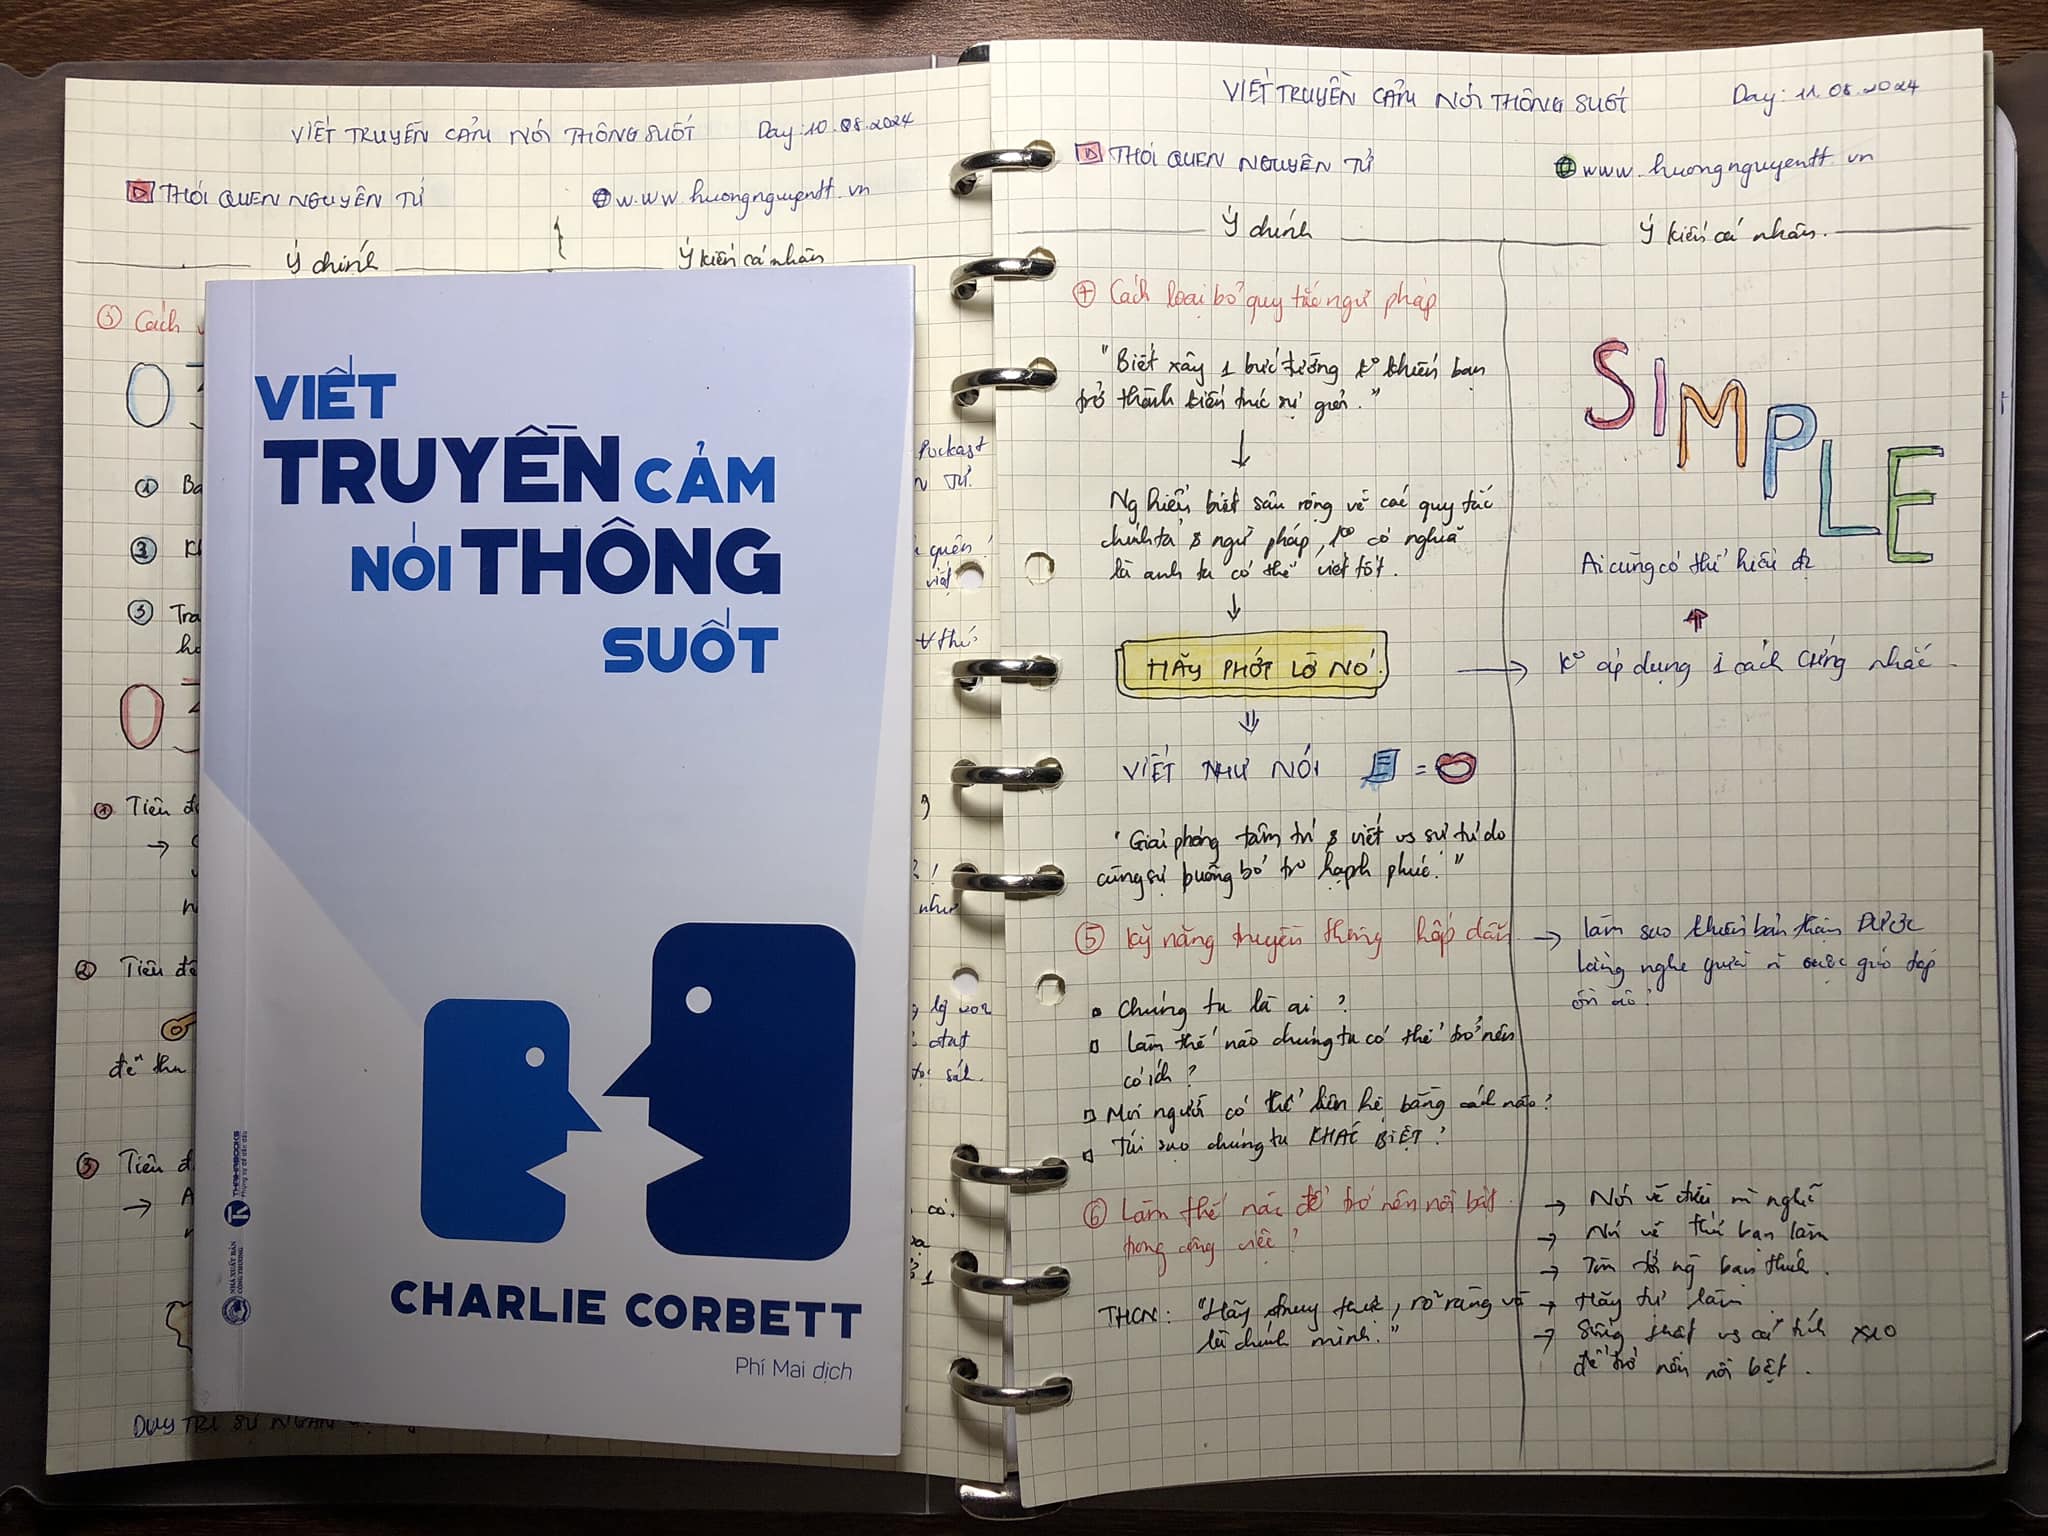 VIẾT TRUYỀN CẢM NÓI THÔNG SUỐT Day: 10.08.2024
THÓI QUEN NGUYÊN TỬ www.huongnguyentt.vn
Ý chính Ý kiến cá nhân
③ Cách
①
②
③
① Tiêu
② Tiêu đề
để thu
③ Tiêu
DUY TRÌ SỰ NGẮN
Podcast
TỬ.
quên!
viết
như
sách.
VIẾT
TRUYỀN CẢM
NÓI THÔNG
SUỐT
CHARLIE CORBETT
Phí Mai dịch
THAIHABOOKS
NHÀ XUẤT BẢN
CÔNG THƯƠNG
VIẾT TRUYỀN CẢM NÓI THÔNG SUỐT Day: 11.08.2024
THÓI QUEN NGUYÊN TỬ www.huongnguyentt.vn
Ý chính Ý kiến cá nhân.
④ Cách loại bỏ quy tắc ngữ pháp
"Biết xây 1 bức tường ko khiến bạn
trở thành kiến trúc sư giỏi."
↓
Nghiên biết sâu rộng về các quy tắc
chính tả & ngữ pháp, ko có nghĩa
là anh ta có thể viết tốt.
↓
HÃY PHỚT LỜ NÓ.
⇓
VIẾT NHƯ NÓI =
"Giải phóng tâm trí & viết vs sự tự do
cùng sự buông bỏ hạnh phúc."
SIMPLE
Ai cũng có thể hiểu đc
↑
→ ko áp dụng 1 cách cứng nhắc.
⑤ Kỹ năng truyền thông hấp dẫn
Chúng ta là ai?
Làm thế nào chúng ta có thể trở nên
có ích?
Mọi người có thể liên hệ bằng cách nào?
Tại sao chúng ta KHÁC BIỆT?
→ Làm sao khiến bản thân ĐƯỢC
lắng nghe giữa
ồn ào?
⑥ Làm thế nào để trở nên nổi bật
trong công việc?
THCN: "Hãy trung thực, rõ ràng và
là chính mình."
→ Nói về điều mình nghĩ
→ Nói về thứ bạn làm
→ Tìm bạn thích.
→ Hãy tự làm
→ Sống thật vs cá tính x10
để trở nên nổi bật.